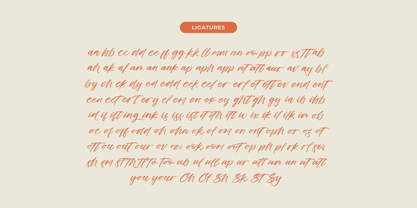 LIGATURES
aa bb cc dd ee ff gg kk ll mm nn oo pp rr ss tt ab
ah ak al am an ank ap aph app at att aur av ay bl
by ch ck dy ed edd eek eel er erl et ett ev end ent
een eet ert ery el em en ex ey ght gh gy ia ib imb
id if ift ing ink is iss ist it ith itt iv ix ik il ilk in ob
oc of off odd oh ohn ok ol om on ont oph or os ot
ott ou out our ov ow ook oom oot op ph pl rk rl sw
sh sm ST Th Tt To Too ub ul ull up ur utt um un ut utt
you your Ch Cl Sh Sk St Sy